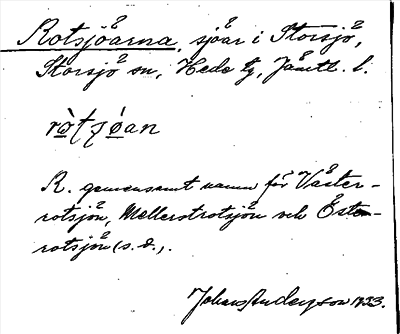 Rotsjöarna, sjöar i Storsjö,
Storsjö sn, Hede tg, Jämtl. l.
rò̱tʃó̱an
R. gemensamt namn för Väster-
rotsjön, Mellerstrotsjön och Öster-
rotsjön (s. d.).
Johans Anderson 1923.